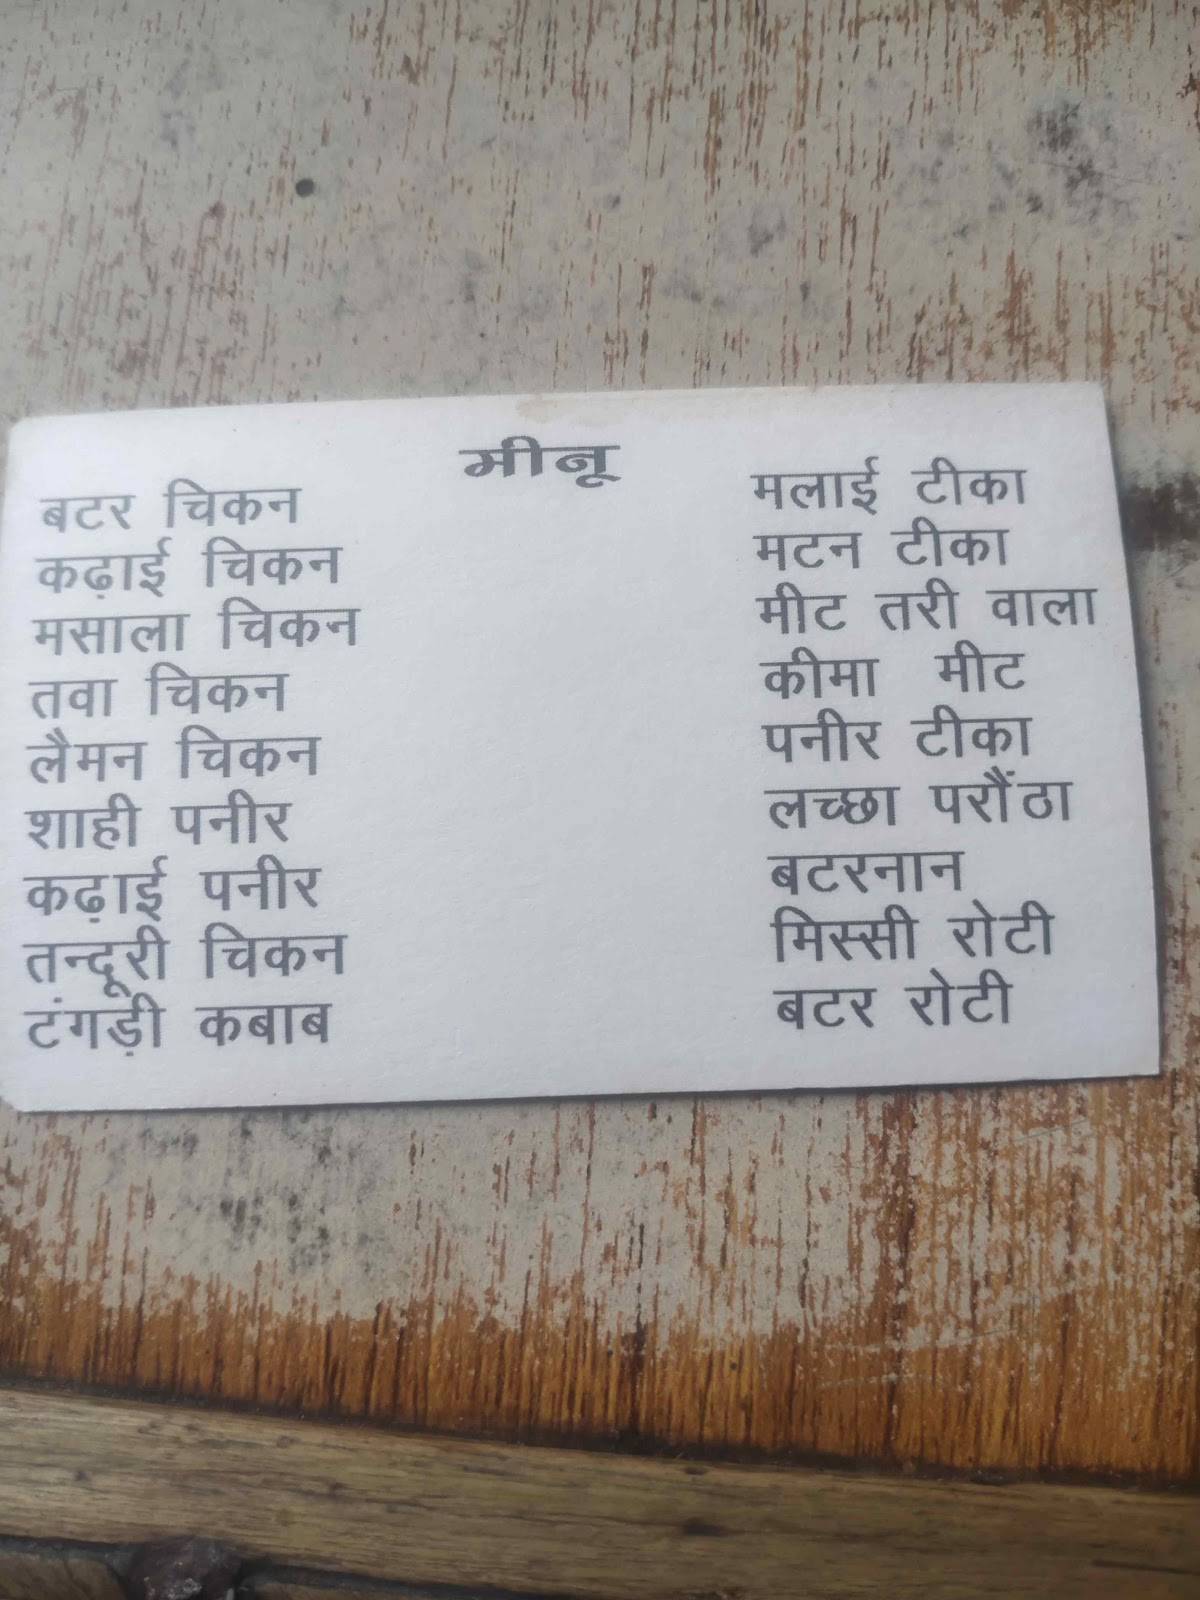 मीनू
बटर चिकन
कढ़ाई चिकन
मसाला चिकन
तवा चिकन
लैमन चिकन
शाही पनीर
कढ़ाई पनीर
तन्दूरी चिकन
टंगड़ी कबाब
मलाई टीका
मटन टीका
मीट तरी वाला
कीमा मीट
पनीर टीका
लच्छा परौंठा
बटरनान
मिस्सी रोटी
बटर रोटी